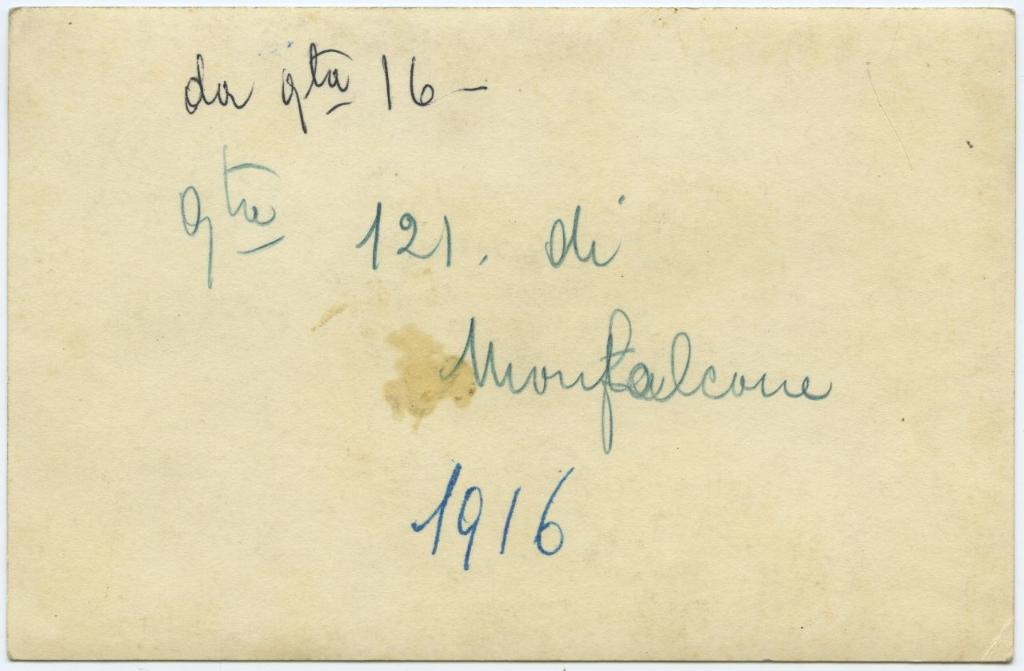 da qta 16 -
qta 121. di
Monfalcone
1916